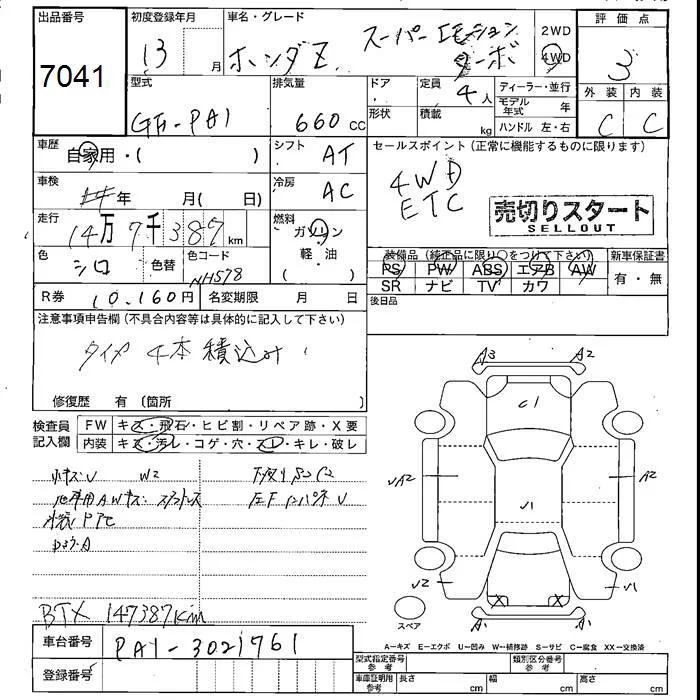 出品番号
7041
初度登録年月
13 月
車名・グレード
ホンダZ スーパーエモーション
ターボ
2WD
4WD
評価点
3
外装 内装
C C
型式
GH-PA1
排気量
660 cc
ドア
形状
定員
4人
積載 kg
ディーラー・並行
モデル年式 年
ハンドル 左・右
車歴
自家用・( )
シフト
AT
セールスポイント(正常に機能するものに限ります)
4WD
ETC
売切りスタート
SELLOUT
車検
年 月( 日)
冷房
AC
走行
14万7千387km
燃料
ガソリン
軽・油
( )
色
シロ
色替
色コード
NH578
装備品(純正品に限り○をつけて下さい)
PS PW ABS エアB AW
SR ナビ TV カワ
新車保証書
有・無
R券 10,160円
名変期限 月 日
後日品
注意事項申告欄(不具合内容等は具体的に記入して下さい)
タイヤ4本積込み
修復歴 有(箇所 )
検査員
記入欄
FW キズ・飛石・ヒビ割・リペア跡・X要
内装 キズ・汚レ・コゲ・穴・スレ・キレ・破レ
小キズU W2
下廻りサビC2
BTX 147387km
車台番号
PA1-3021761
登録番号
A3 A2
C1
UA2 A2
U1
U2 U1
X X
A1 A1
スペア
A-キズ E-エクボ U-凹み W-補修跡 S-サビ C-腐食 XX-交換済
型式指定番号
参考
類別区分番号
参考
車庫証明用
参考
長さ cm
幅 cm
高さ cm